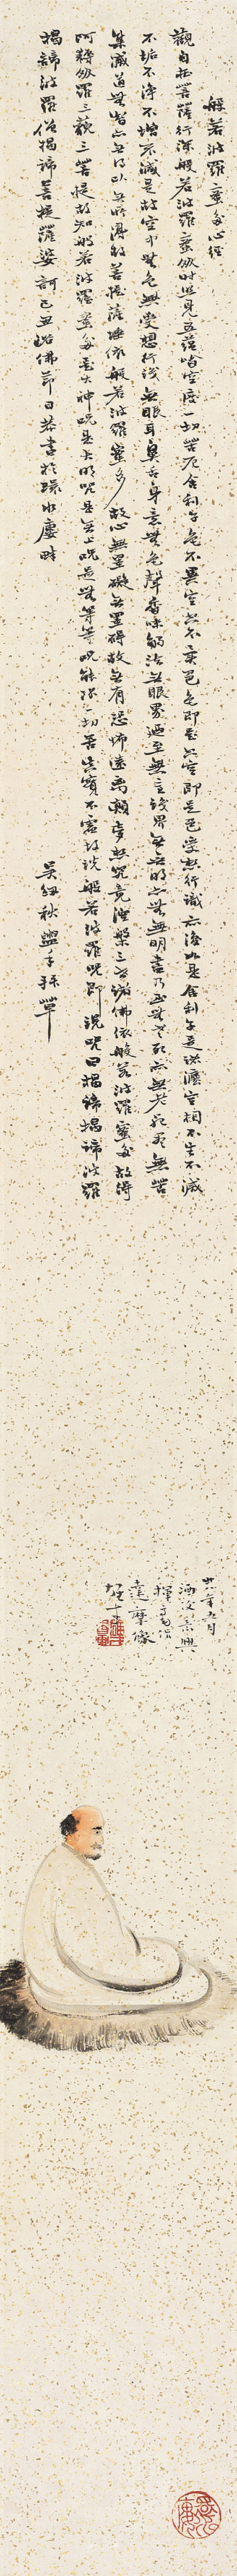 般若波羅蜜多心經
觀自在菩薩行深般若波羅蜜多時照見五蘊皆空度一切苦厄舍利子色不異空空不異色色即是空空即是色受想行識亦復如是舍利子是諸法空相不生不滅
不垢不淨不增不減是故空中無色無受想行識無眼耳鼻舌身意無色聲香味觸法無眼界乃至無意識界無無明亦無無明盡乃至無老死亦無老死盡無苦
集滅道無智亦無得以無所得故菩提薩埵依般若波羅蜜多故心無罣礙無罣礙故無有恐怖遠離顛倒夢想究竟涅槃三世諸佛依般若波羅蜜多故得
阿耨多羅三藐三菩提故知般若波羅蜜多是大神咒是大明咒是無上咒是無等等咒能除一切苦真實不虛故說般若波羅咒即說咒曰揭諦揭諦波羅
揭諦波羅僧揭諦菩提薩婆訶己丑浴佛節日恭書於
吳紉秋盥手拜草
廿八年九月
酒後
達摩像